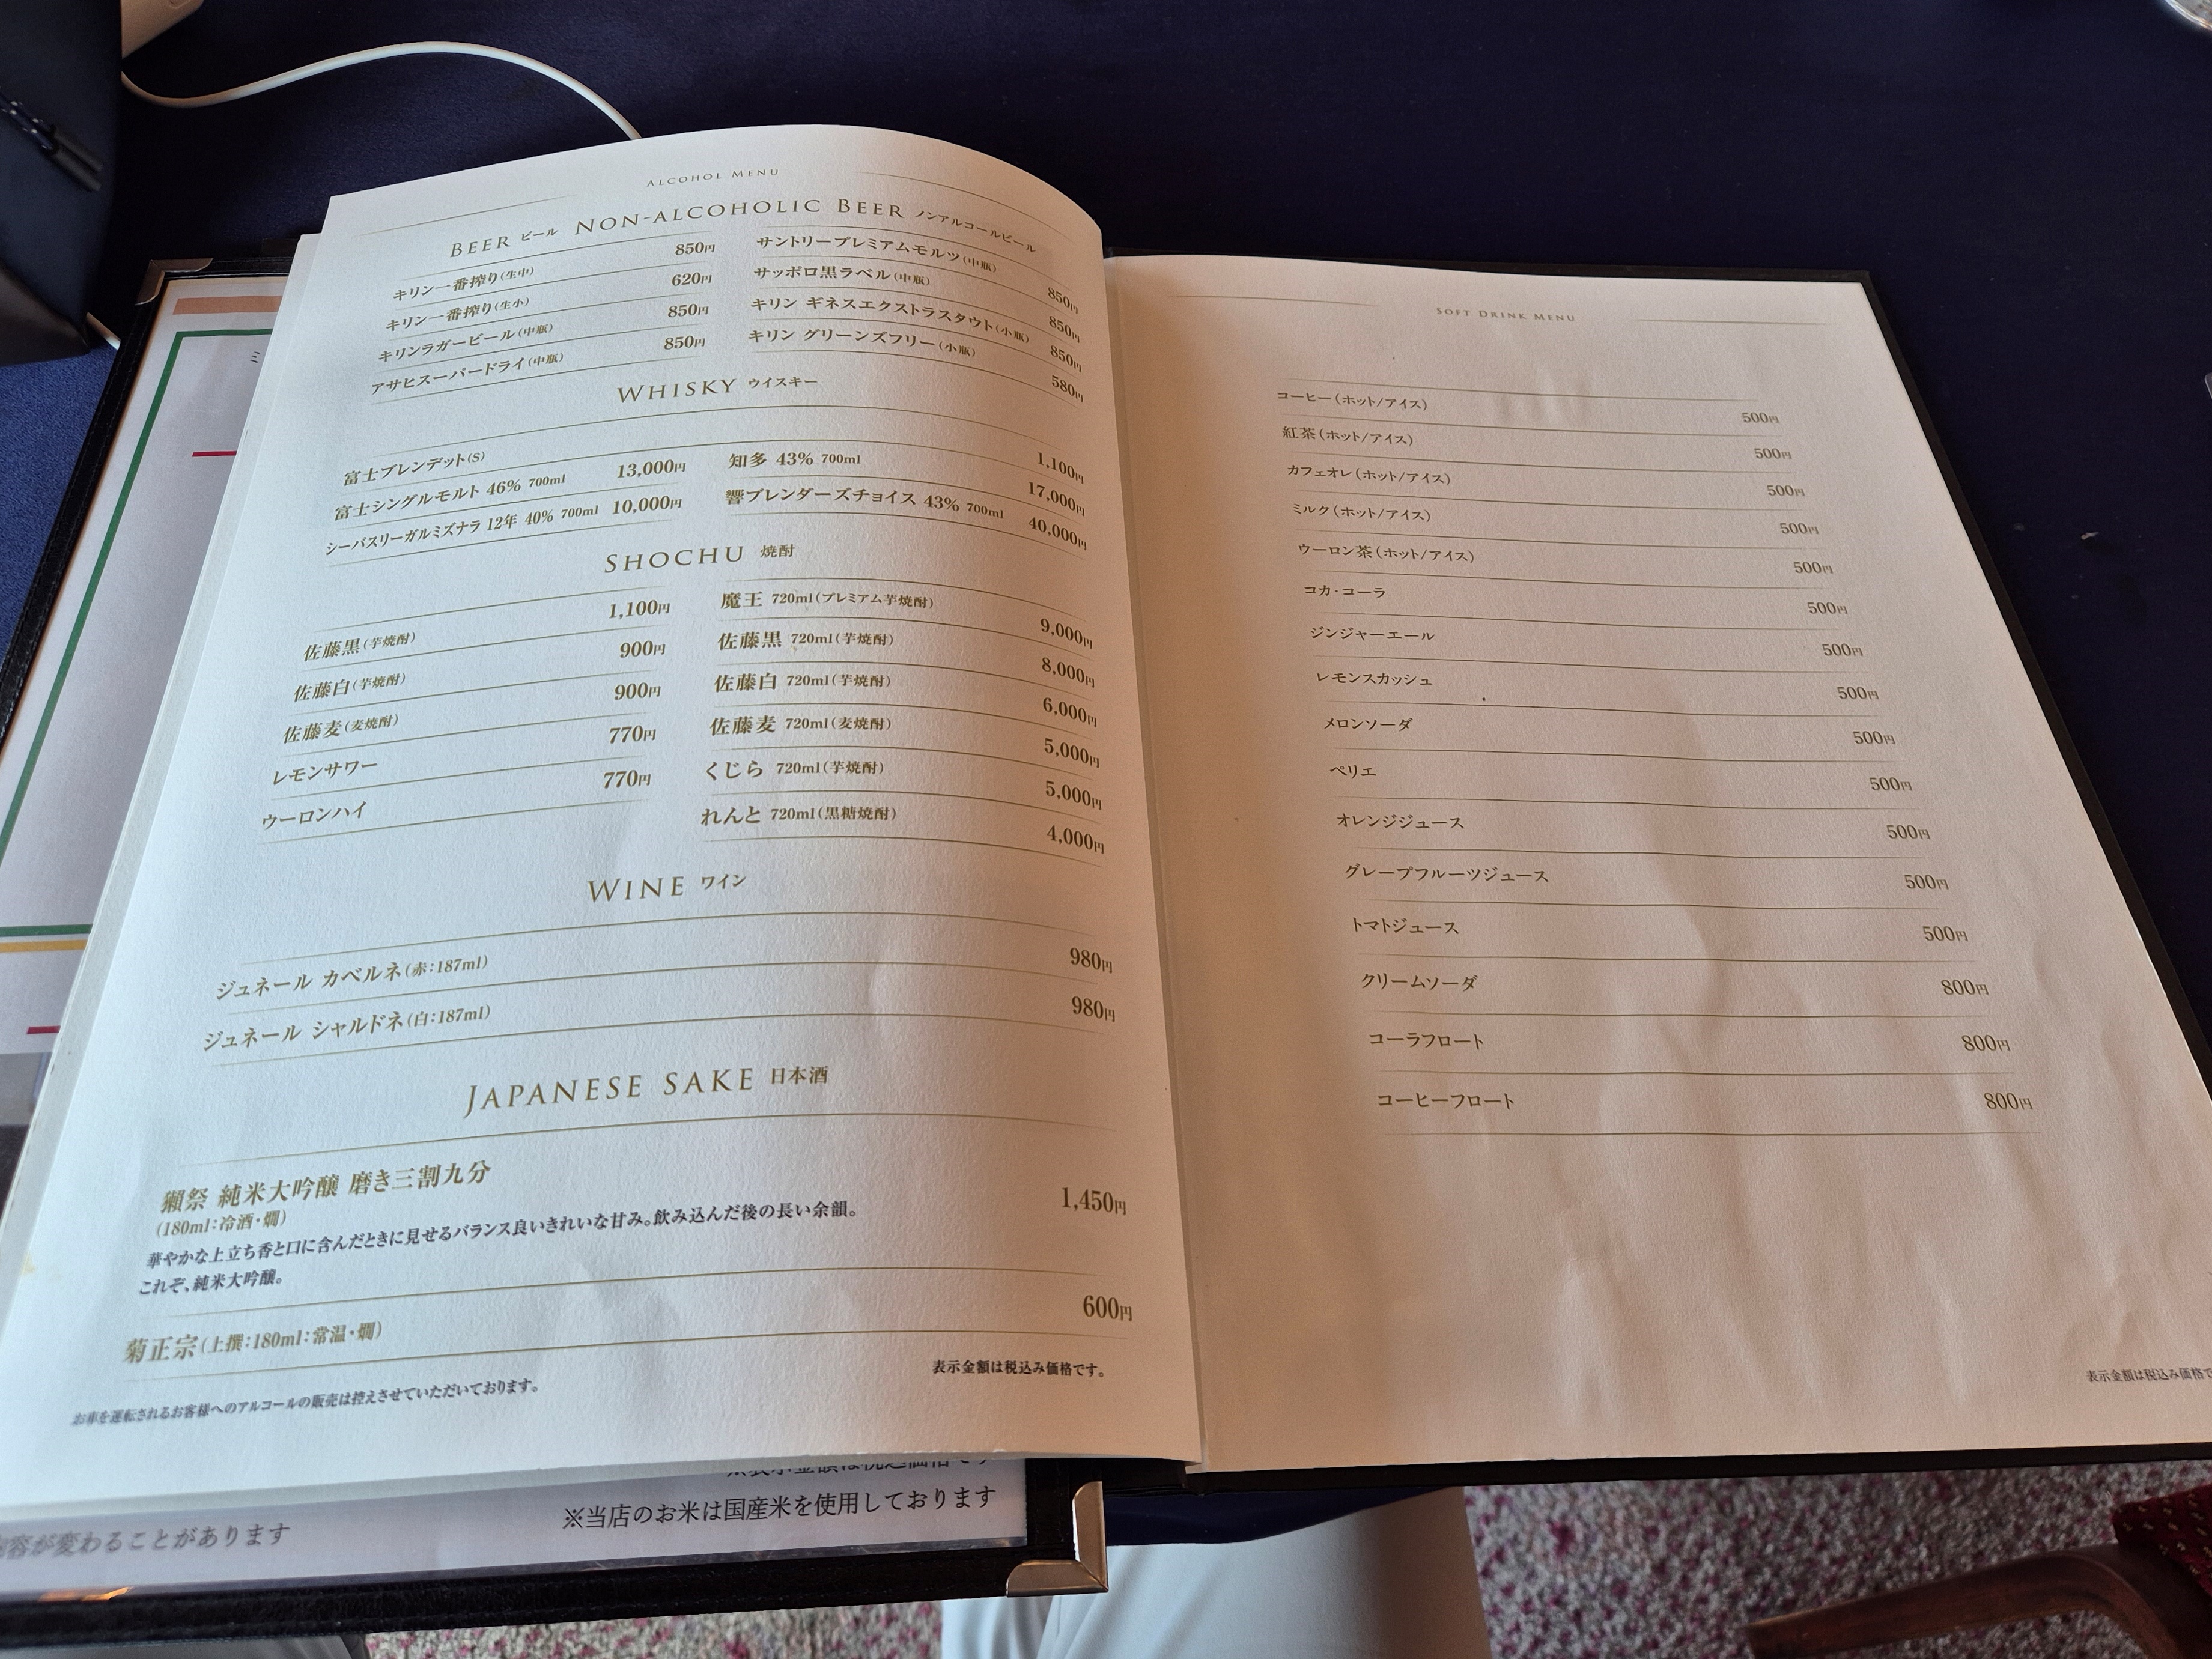 ALCOHOL MENU
BEER ビール NON-ALCOHOLIC BEER ノンアルコールビール
キリン一番搾り(生中) 850円
キリン一番搾り(生小) 620円
キリンラガービール(中瓶) 850円
アサヒスーパードライ(中瓶) 850円
サントリープレミアムモルツ(中瓶) 850円
サッポロ黒ラベル(中瓶) 850円
キリン ギネスエクストラスタウト(小瓶) 850円
キリン グリーンズフリー(小瓶) 580円
WHISKY ウイスキー
富士ブレンデット(S) 1,100円
富士シングルモルト 46% 700ml 13,000円
シーバスリーガルミズナラ 12年 40% 700ml 10,000円
知多 43% 700ml 17,000円
響ブレンダーズチョイス 43% 700ml 40,000円
SHOCHU 焼酎
佐藤黒(芋焼酎) 1,100円
佐藤白(芋焼酎) 900円
佐藤麦(麦焼酎) 900円
レモンサワー 770円
ウーロンハイ 770円
魔王 720ml(プレミアム芋焼酎) 9,000円
佐藤黒 720ml(芋焼酎) 8,000円
佐藤白 720ml(芋焼酎) 6,000円
佐藤麦 720ml(麦焼酎) 5,000円
くじら 720ml(芋焼酎) 5,000円
れんと 720ml(黒糖焼酎) 4,000円
WINE ワイン
ジュネール カベルネ(赤:187ml) 980円
ジュネール シャルドネ(白:187ml) 980円
JAPANESE SAKE 日本酒
獺祭 純米大吟醸 磨き三割九分 1,450円
(180ml:冷酒・燗)
華やかな上立ち香と口に含んだときに見せるバランス良いきれいな甘み。飲み込んだ後の長い余韻。
これぞ、純米大吟醸。
菊正宗(上撰:180ml:常温・燗) 600円
表示金額は税込み価格です。
お車を運転されるお客様へのアルコールの販売は控えさせていただいております。
※当店のお米は国産米を使用しております
内容が変わることがあります
SOFT DRINK MENU
コーヒー(ホット/アイス) 500円
紅茶(ホット/アイス) 500円
カフェオレ(ホット/アイス) 500円
ミルク(ホット/アイス) 500円
ウーロン茶(ホット/アイス) 500円
コカ・コーラ 500円
ジンジャーエール 500円
レモンスカッシュ 500円
メロンソーダ 500円
ペリエ 500円
オレンジジュース 500円
グレープフルーツジュース 500円
トマトジュース 500円
クリームソーダ 800円
コーラフロート 800円
コーヒーフロート 800円
表示金額は税込み価格で